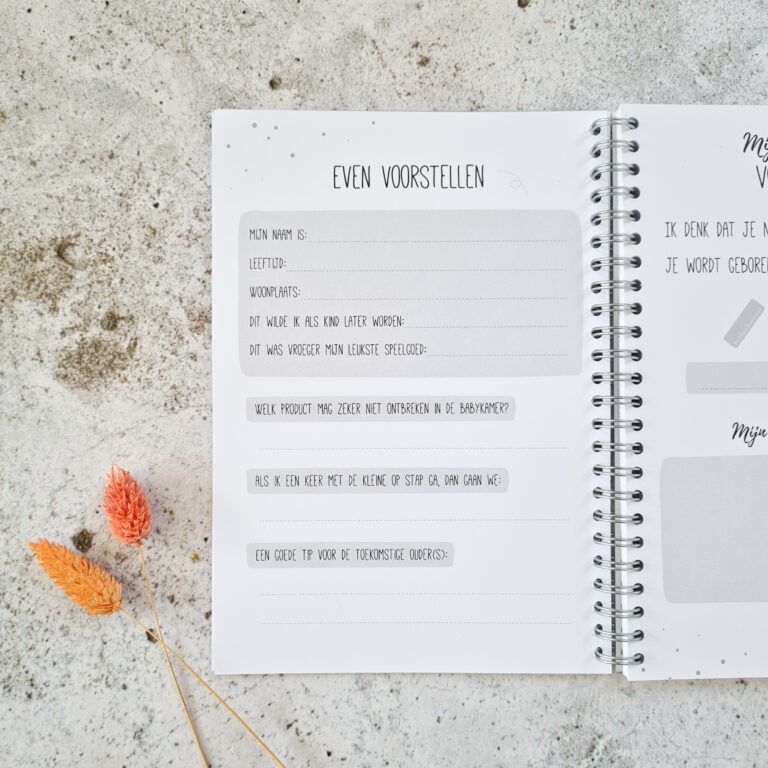 EVEN VOORSTELLEN
MIJN NAAM IS:
LEEFTIJD:
WOONPLAATS:
DIT WILDE IK ALS KIND LATER WORDEN:
DIT WAS VROEGER MIJN LEUKSTE SPEELGOED:
WELK PRODUCT MAG ZEKER NIET ONTBREKEN IN DE BABYKAMER?
ALS IK EEN KEER MET DE KLEINE OP STAP GA, DAN GAAN WE:
EEN GOEDE TIP VOOR DE TOEKOMSTIGE OUDER(S):
IK DENK DAT JE
JE WORDT
Mijn